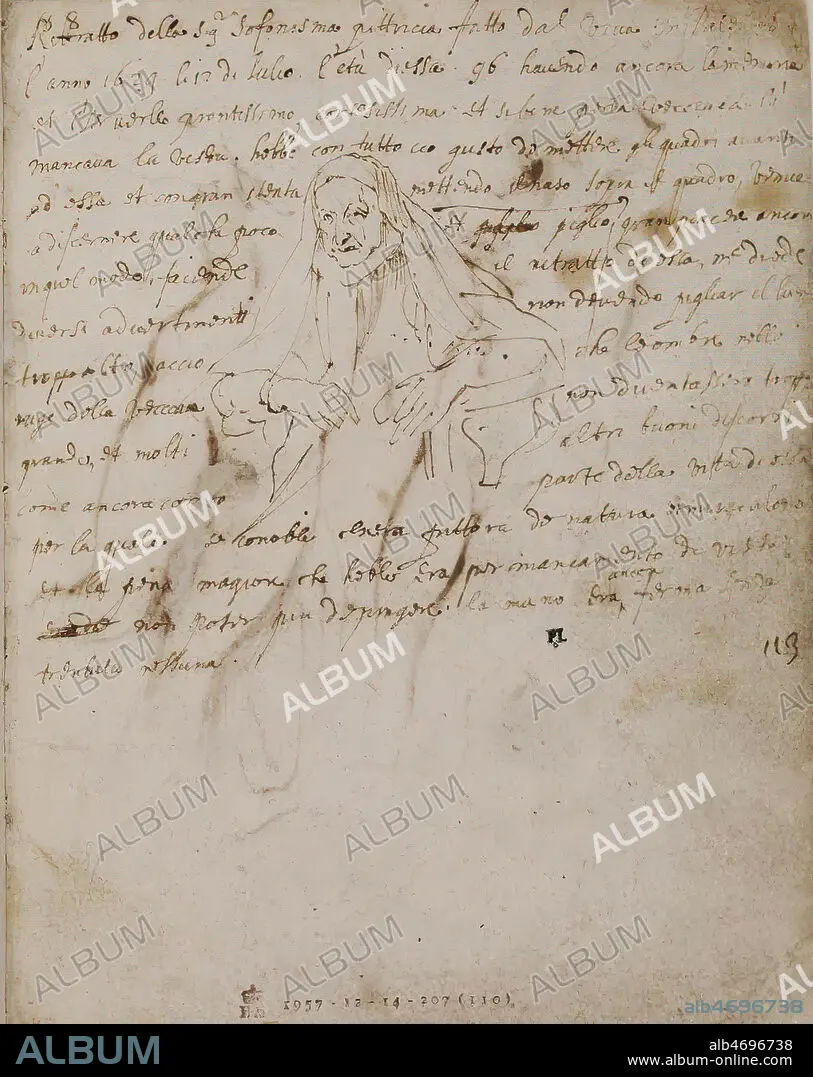 Rittratto della Sig.ra Sofonisma pittricia fatto dal vivo in Palermo
l'anno 1624 li 12 di Julio. l'età di essa 96 havendo ancora la memoria
et il cervello prontissimo, cortesissima. et sebene per la vecciaia li
mancava la vista. hebbe con tutto cio gusto de mettere gli quadri avanti
ad essa et con gran stenta mettendo il naso sopra il quadro, venne
a discernere qualche poco et piglio gran piacere ancora
in quel modo, facendo il ritratto di essa, me diede
diversi advertimenti non devendo pigliar il lume
troppo alto, accio che le ombre nelle
ruge della vecciaia non diventassero troppo
grande, et molti altri buoni discorsi
come ancora conto parte della vita di essa
per la quale se conobbe chera pittora de natura et miraculosa
et la pena magiore che hebbe era per mancamento di vista
non poter piu dipingere. la mano era ancora ferma senza
tremula nessuna.
PL
113
1957-12-14-207 (110)
ALBUM
alb4696738
ALBUM
alb4696738
www.album-online.com